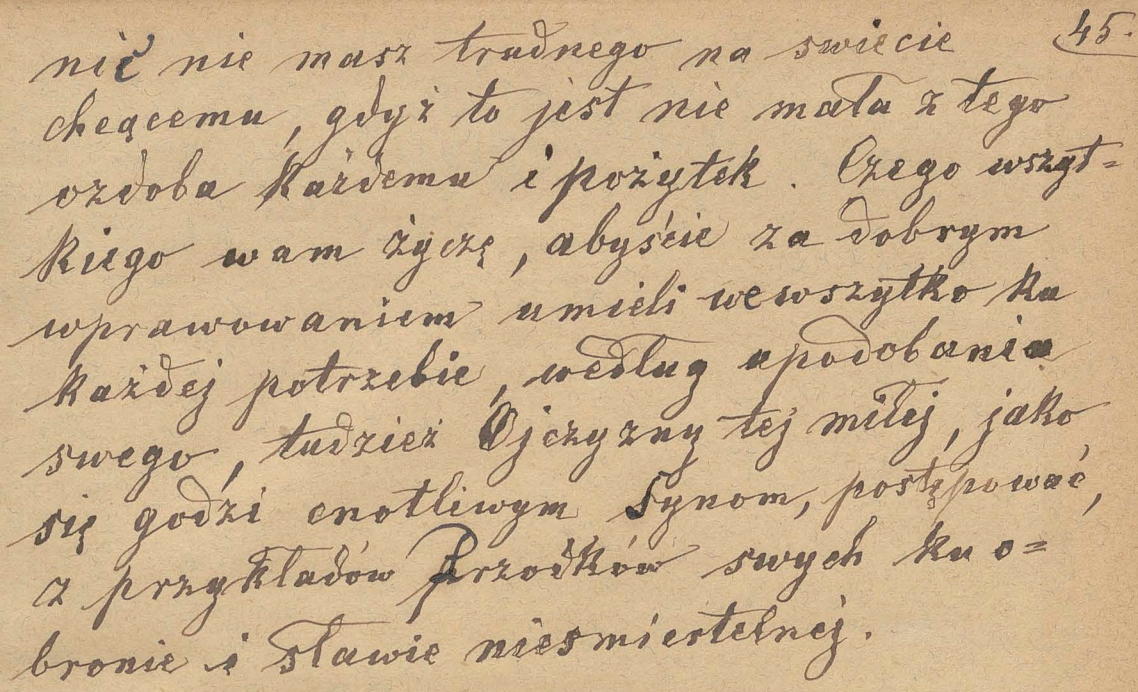 nic nie masz trudnego na swiecie 45.
chcącemu, gdyż to jest nie mała z tego
ozdoba każdemu i pożytek. Czego wszyt=
kiego wam życzę, abyście za dobrym
wprawowaniem umieli wewszytko ku
każdej potrzebie, według upodobania
swego, tudzież Ojczyzny tej miłej, jako
się godzi cnotliwym Synom, postępować,
z przykładów Przodków swych ku o=
bronie i sławie niesmiertelnej.